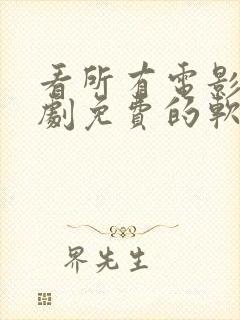 看所有电影
劇免費的軟
界先生